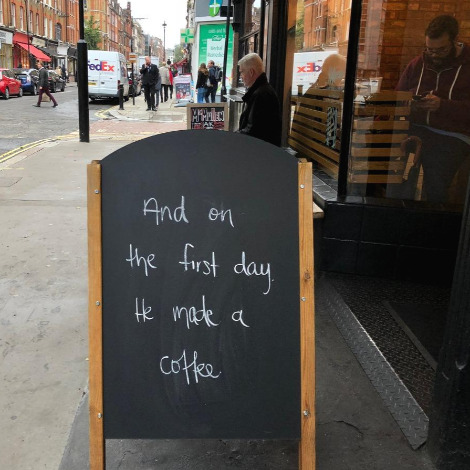 And on
the first day.
He made a
coffee.
FedEx